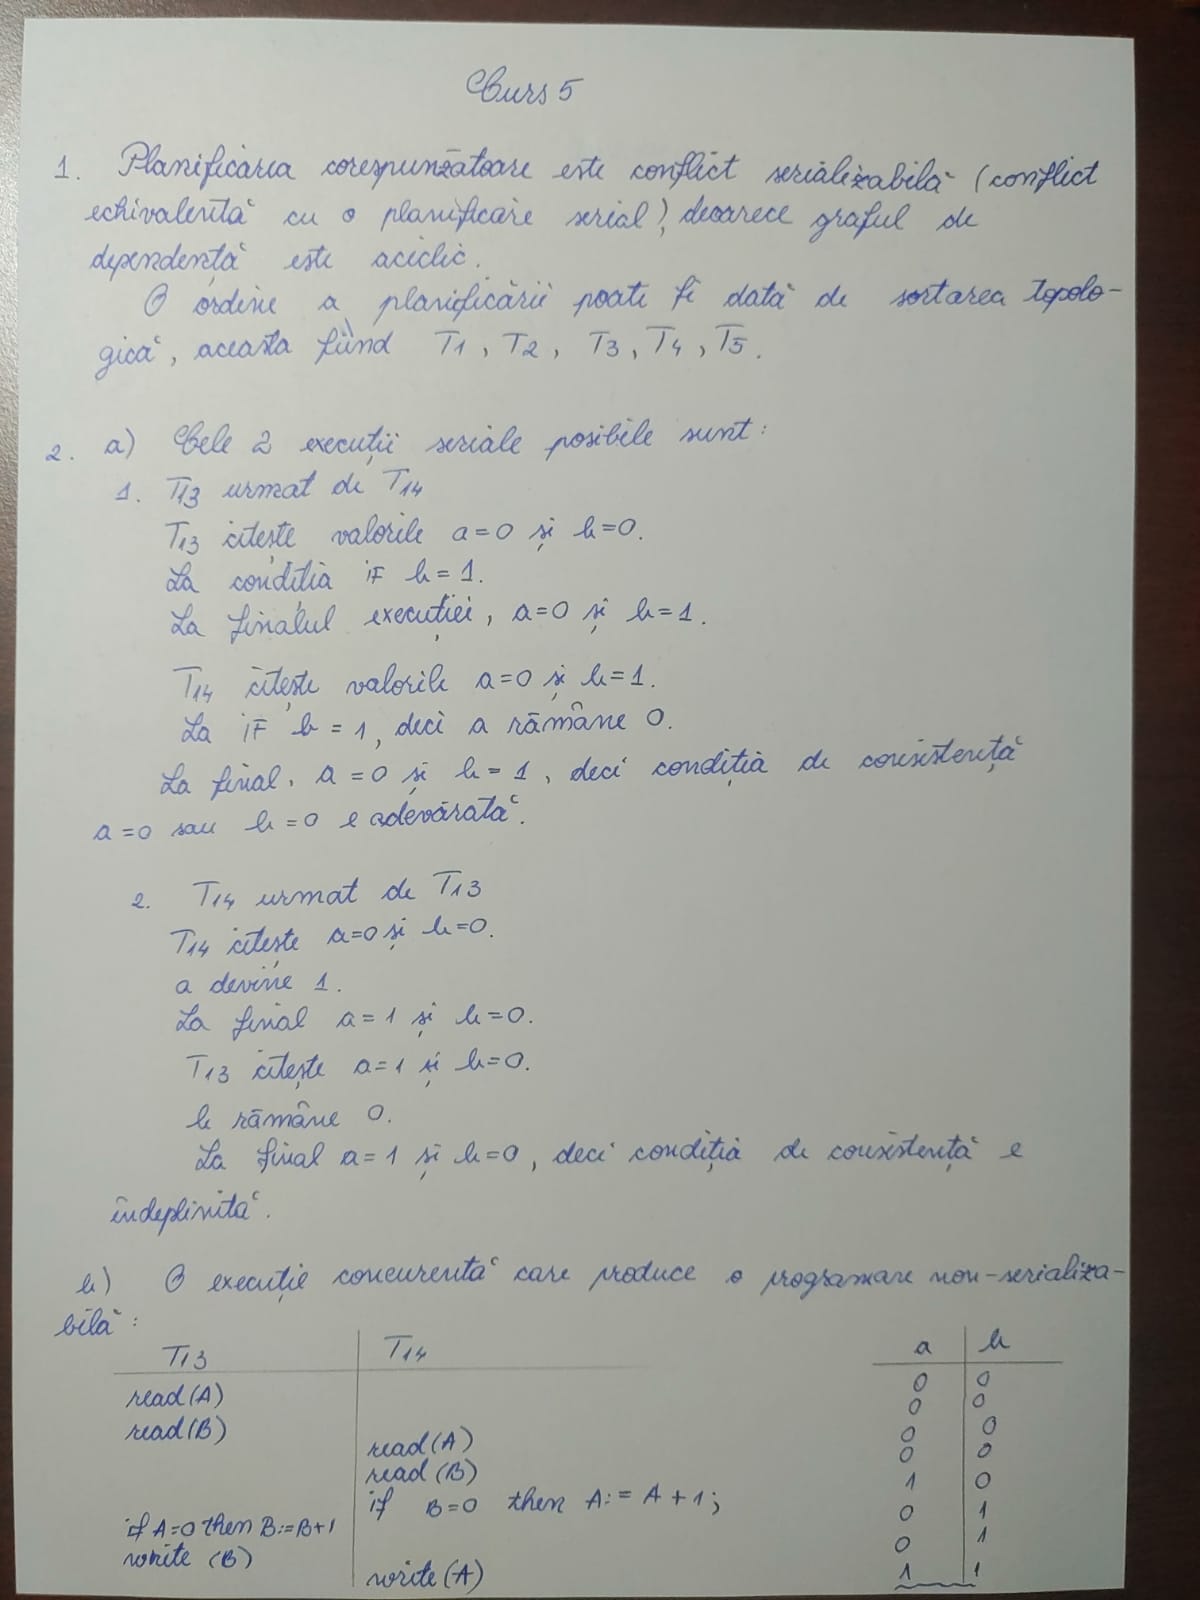 Curs 5
1. Planificarea corespunzătoare este conflict serializabilă (conflict
echivalentă cu o planificare serial), deoarece graful de
dependență este aciclic.
O ordine a planificării poate fi dată de sortarea topolo-
gică, aceasta fiind T1, T2, T3, T4, T5.
2. a) Cele 2 execuții seriale posibile sunt:
1. T13 urmat de T14
T13 citește valorile a=0 și b=0.
La condiția IF b=1.
La finalul execuției, a=0 și b=1.
T14 citește valorile a=0 și b=1.
La IF b=1, deci a rămâne 0.
La final, a=0 și b=1, deci condiția de consistență
a=0 sau b=0 e adevărată.
2. T14 urmat de T13
T14 citește a=0 și b=0.
a devine 1.
La final a=1 și b=0.
T13 citește a=1 și b=0.
b rămâne 0.
La final a=1 și b=0, deci condiția de consistență e
îndeplinită.
b) O execuție concurentă care produce o programare non-serializa-
bilă:
T13 T14 a b
read(A) 0 0
read(B) 0 0
read(A) 0 0
read(B) 0 0
if B=0 then A:=A+1; 1 0
if A=0 then B:=B+1 0 1
write(B) 0 1
write(A) 1 1